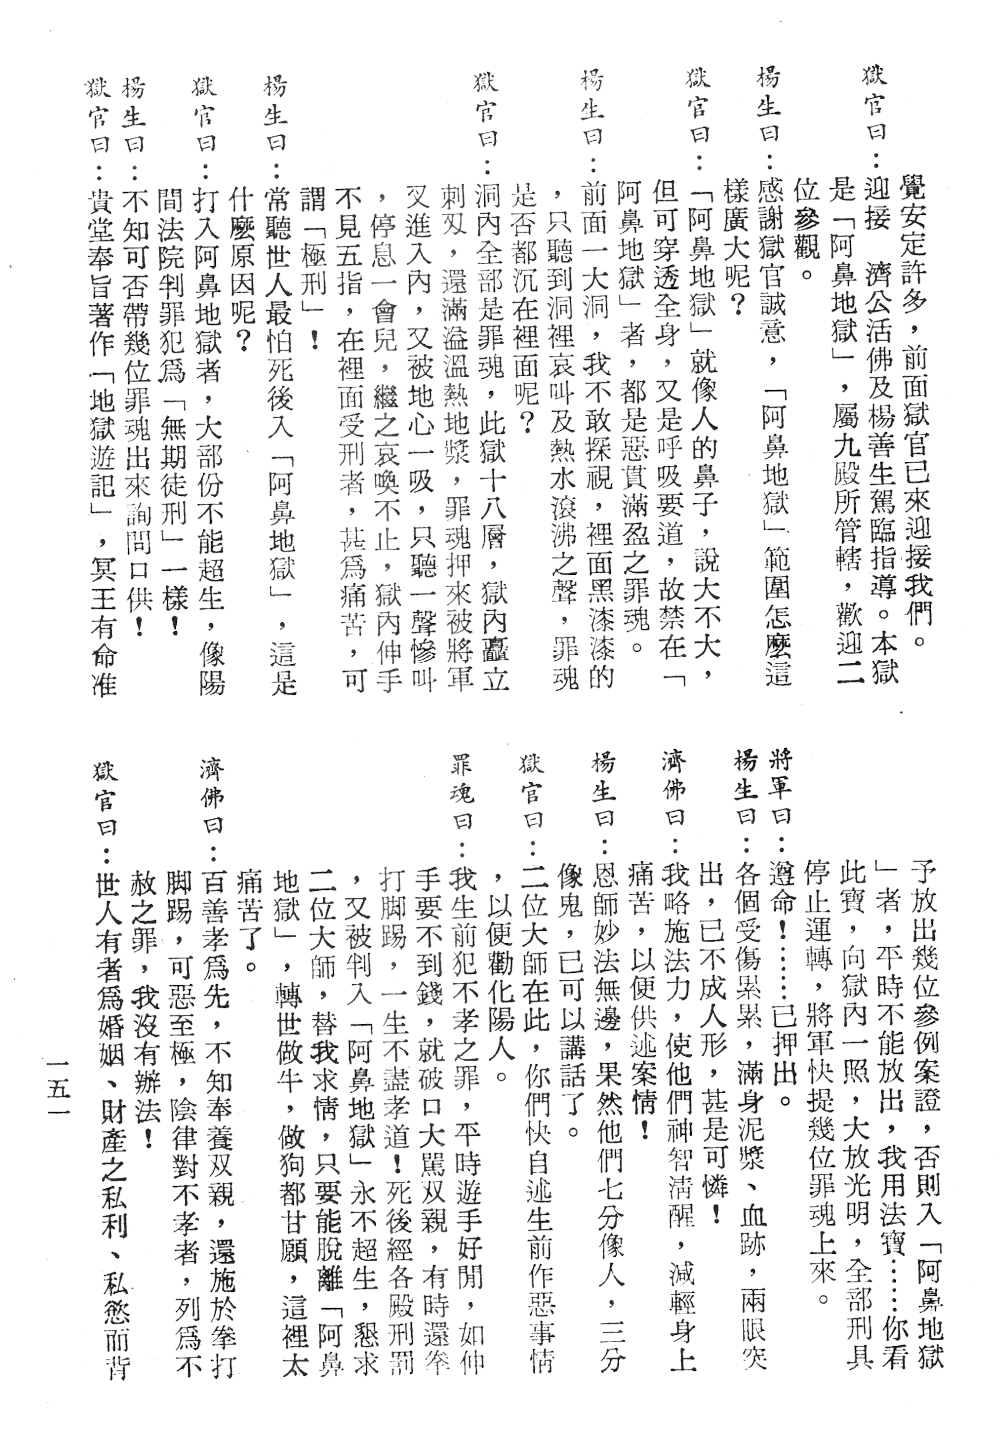 覺安定許多，前面獄官已來迎接我們。
獄官曰：迎接　濟公活佛及楊善生駕臨指導。本獄
是「阿鼻地獄」，屬九殿所管轄，歡迎二
位參觀。
楊生曰：感謝獄官誠意，「阿鼻地獄」範圍怎麼這
樣廣大呢？
獄官曰：「阿鼻地獄」就像人的鼻子，說大不大，
但可穿透全身，又是呼吸要道，故禁在「
阿鼻地獄」者，都是惡貫滿盈之罪魂。
楊生曰：前面一大洞，我不敢探視，裡面黑漆漆的
，只聽到洞裡哀叫及熱水滾沸之聲，罪魂
是否都沉在裡面呢？
獄官曰：洞內全部是罪魂，此獄十八層，獄內矗立
刺刄，還滿溢溫熱地漿，罪魂押來被將軍
叉進入內，又被地心一吸，只聽一聲慘叫
，停息一會兒，繼之哀喚不止，獄內伸手
不見五指，在裡面受刑者，甚爲痛苦，可
謂「極刑」！
楊生曰：常聽世人最怕死後入「阿鼻地獄」，這是
什麼原因呢？
獄官曰：打入阿鼻地獄者，大部份不能超生，像陽
間法院判罪犯爲「無期徒刑」一樣！
楊生曰：不知可否帶幾位罪魂出來詢問口供！
獄官曰：貴堂奉旨著作「地獄遊記」，冥王有命准
予放出幾位參例案證，否則入「阿鼻地獄
」者，平時不能放出，我用法寶……你看
此寶，向獄內一照，大放光明，全部刑具
停止運轉，將軍快提幾位罪魂上來。
將軍曰：遵命！……已押出。
楊生曰：各個受傷累累，滿身泥漿、血跡，兩眼突
出，已不成人形，甚是可憐！
濟佛曰：我略施法力，使他們神智清醒，減輕身上
痛苦，以便供述案情！
楊生曰：恩師妙法無邊，果然他們七分像人，三分
像鬼，已可以講話了。
獄官曰：二位大師在此，你們快自述生前作惡事情
，以便勸化陽人。
罪魂曰：我生前犯不孝之罪，平時遊手好閒，如伸
手要不到錢，就破口大駡双親，有時還拳
打脚踢，一生不盡孝道！死後經各殿刑罰
，又被判入「阿鼻地獄」永不超生，懇求
二位大師，替我求情，只要能脫離「阿鼻
地獄」，轉世做牛，做狗都甘願，這裡太
痛苦了。
濟佛曰：百善孝爲先，不知奉養双親，還施於拳打
脚踢，可惡至極，陰律對不孝者，列爲不
赦之罪，我沒有辦法！
獄官曰：世人有者爲婚姻、財產之私利、私慾而背
一五一